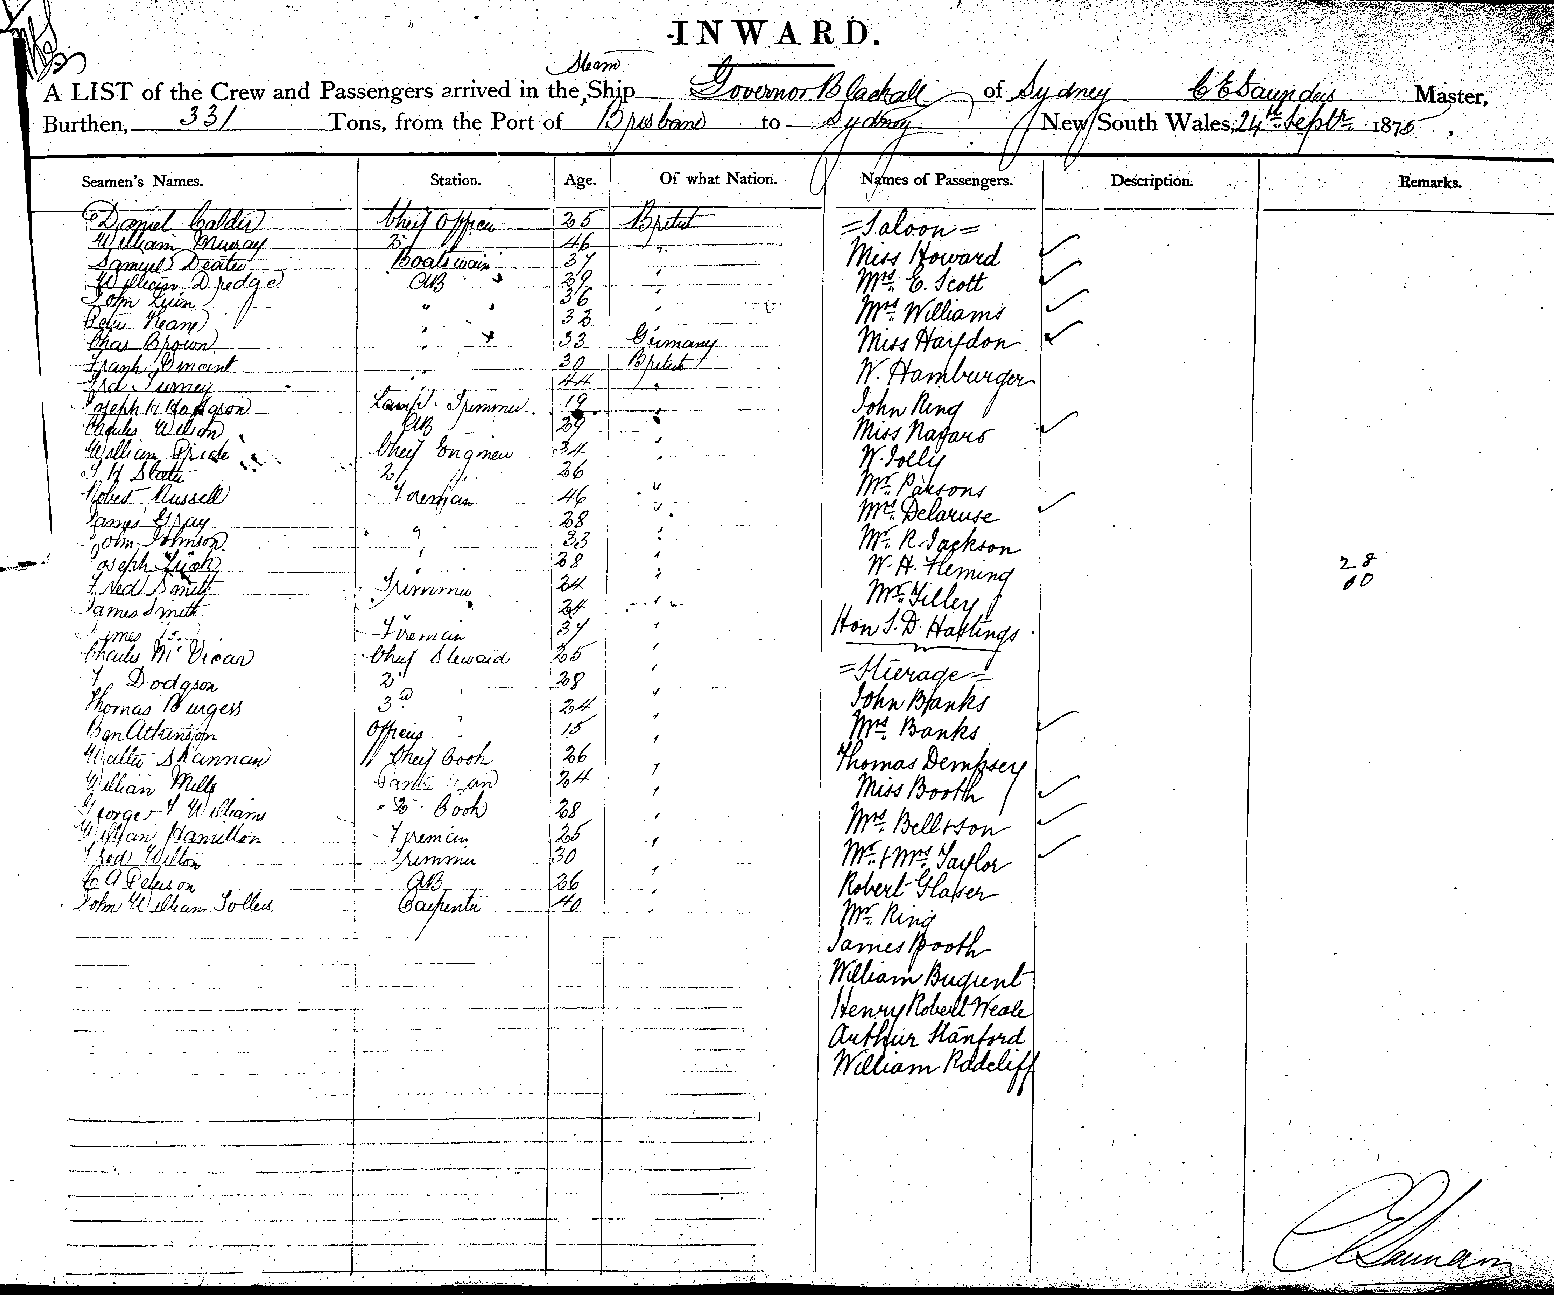 INWARD.
Steam
A LIST of the Crew and Passengers arrived in the Ship Governor Blackall of Sydney C E Saunders Master,
Burthen, 331 Tons, from the Port of Brisbane to Sydney New South Wales, 24th Septr 1875
Seamen's Names. Station. Age. Of what Nation. Names of Passengers. Description. Remarks.
Daniel Calder Cheif Officer 25 British
William Murray 2 " 46 "
Samuel Deates Boatswain 37 "
William Dredge AB 29 "
John Quin " 36 "
Peter Keane " 32
Chas Brown " 33 Germany
Frank Vincent " 30 British
Fred Turney " 44 "
Joseph H Hodgson Lamp Trimmer 19
Charles Wilson AB 29 "
William Pride Cheif Engineer 34 "
T H Slate 2 " 26 "
Robert Russell Foreman 46 "
James Gray 28 "
John Johnson " 33 "
Joseph 28 "
Fred Smith Trimmer 24 "
James Smith " 24 "
James Fireman 37 "
Charles McVican Cheif Steward 25 "
F Dodgson 2 " 28 "
Thomas Burgess 3rd " 24 "
Ben Atkinson Officers " 15 "
Walter Shannan " Cheif Cook 26 "
William Mills 24 "
George F Williams 2 Cook 28 "
William Hamilton Fireman 25 "
Fred Wilton Trimmer 30 "
C A Peterson AB 26 "
John William Tollers Carpenter 40 "
=Saloon=
Miss Howard ✓
Mrs. E. Scott ✓
Mrs. Williams ✓
Miss Haydon ✓
W. Hamburger
John Ring
Miss Nagaro ✓
W. Jolly
Mr. Parsons
Mrs. Delaruse ✓
Mr. R. Jackson
W. H. Fleming
Mr. Tilley
Hon S. D. Hastings
=Steerage=
John Banks
Mrs. Banks ✓
Thomas Dempsey
Miss Booth ✓
Mrs. Bellison ✓
Mr. & Mrs. Taylor ✓
Robert Glaser
Mr. Ring
James Booth
William Bugent
Henry Robert Weale
Arthur Stanford
William Radcliff
28
00
C E Saunders